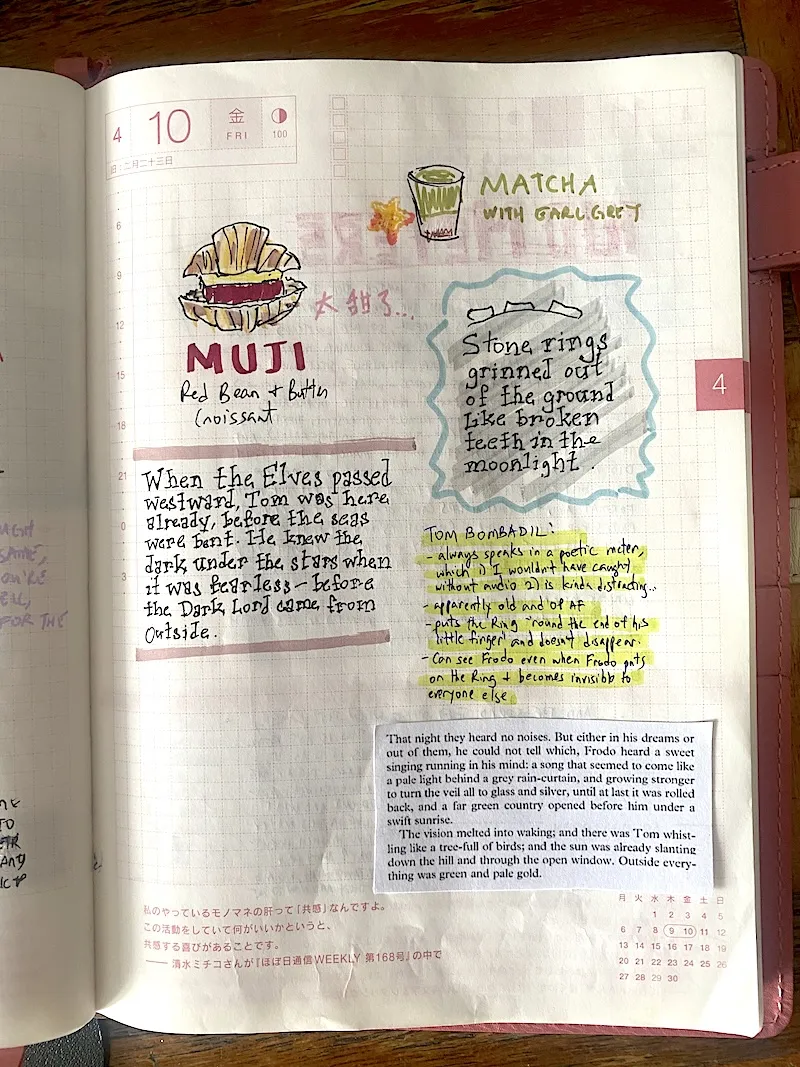 4 10 金
FRI
100
旧:二月二十三日
MATCHA
WITH EARL GREY
太甜了...
MUJI
Red Bean + Butter
Croissant
Stone rings
grinned out
of the ground
Like broken
teeth in the
moonlight.
4
When the Elves passed
westward, Tom was here
already, before the seas
were bent. He knew the
dark under the stars when
it was fearless - before
the Dark Lord came from
Outside.
6
9
12
15
18
21
0
3
TOM BOMBADIL:
- always speaks in a poetic meter,
which 1) I wouldn't have caught
without audio 2) is kinda distracting...
- apparently old and OP AF
- puts the Ring "round the end of his
little finger" and doesn't disappear.
- Can see Frodo even when Frodo puts
on the Ring + becomes invisible to
everyone else
That night they heard no noises. But either in his dreams or
out of them, he could not tell which, Frodo heard a sweet
singing running in his mind: a song that seemed to come like
a pale light behind a grey rain-curtain, and growing stronger
to turn the veil all to glass and silver, until at last it was rolled
back, and a far green country opened before him under a
swift sunrise.
The vision melted into waking; and there was Tom whist-
ling like a tree-full of birds; and the sun was already slanting
down the hill and through the open window. Outside every-
thing was green and pale gold.
私のやっているモノマネの肝って「共感」なんですよ。
この活動をしていて何がいいかというと、
共感する喜びがあることです。
―― 清水ミチコさんが『ほぼ日通信WEEKLY 第168号』の中で
月 火 水 木 金 土 日
1 2 3 4 5
6 7 8 9 10 11 12
13 14 15 16 17 18 19
20 21 22 23 24 25 26
27 28 29 30
SAME,
YOU'RE
FOR THE
TO